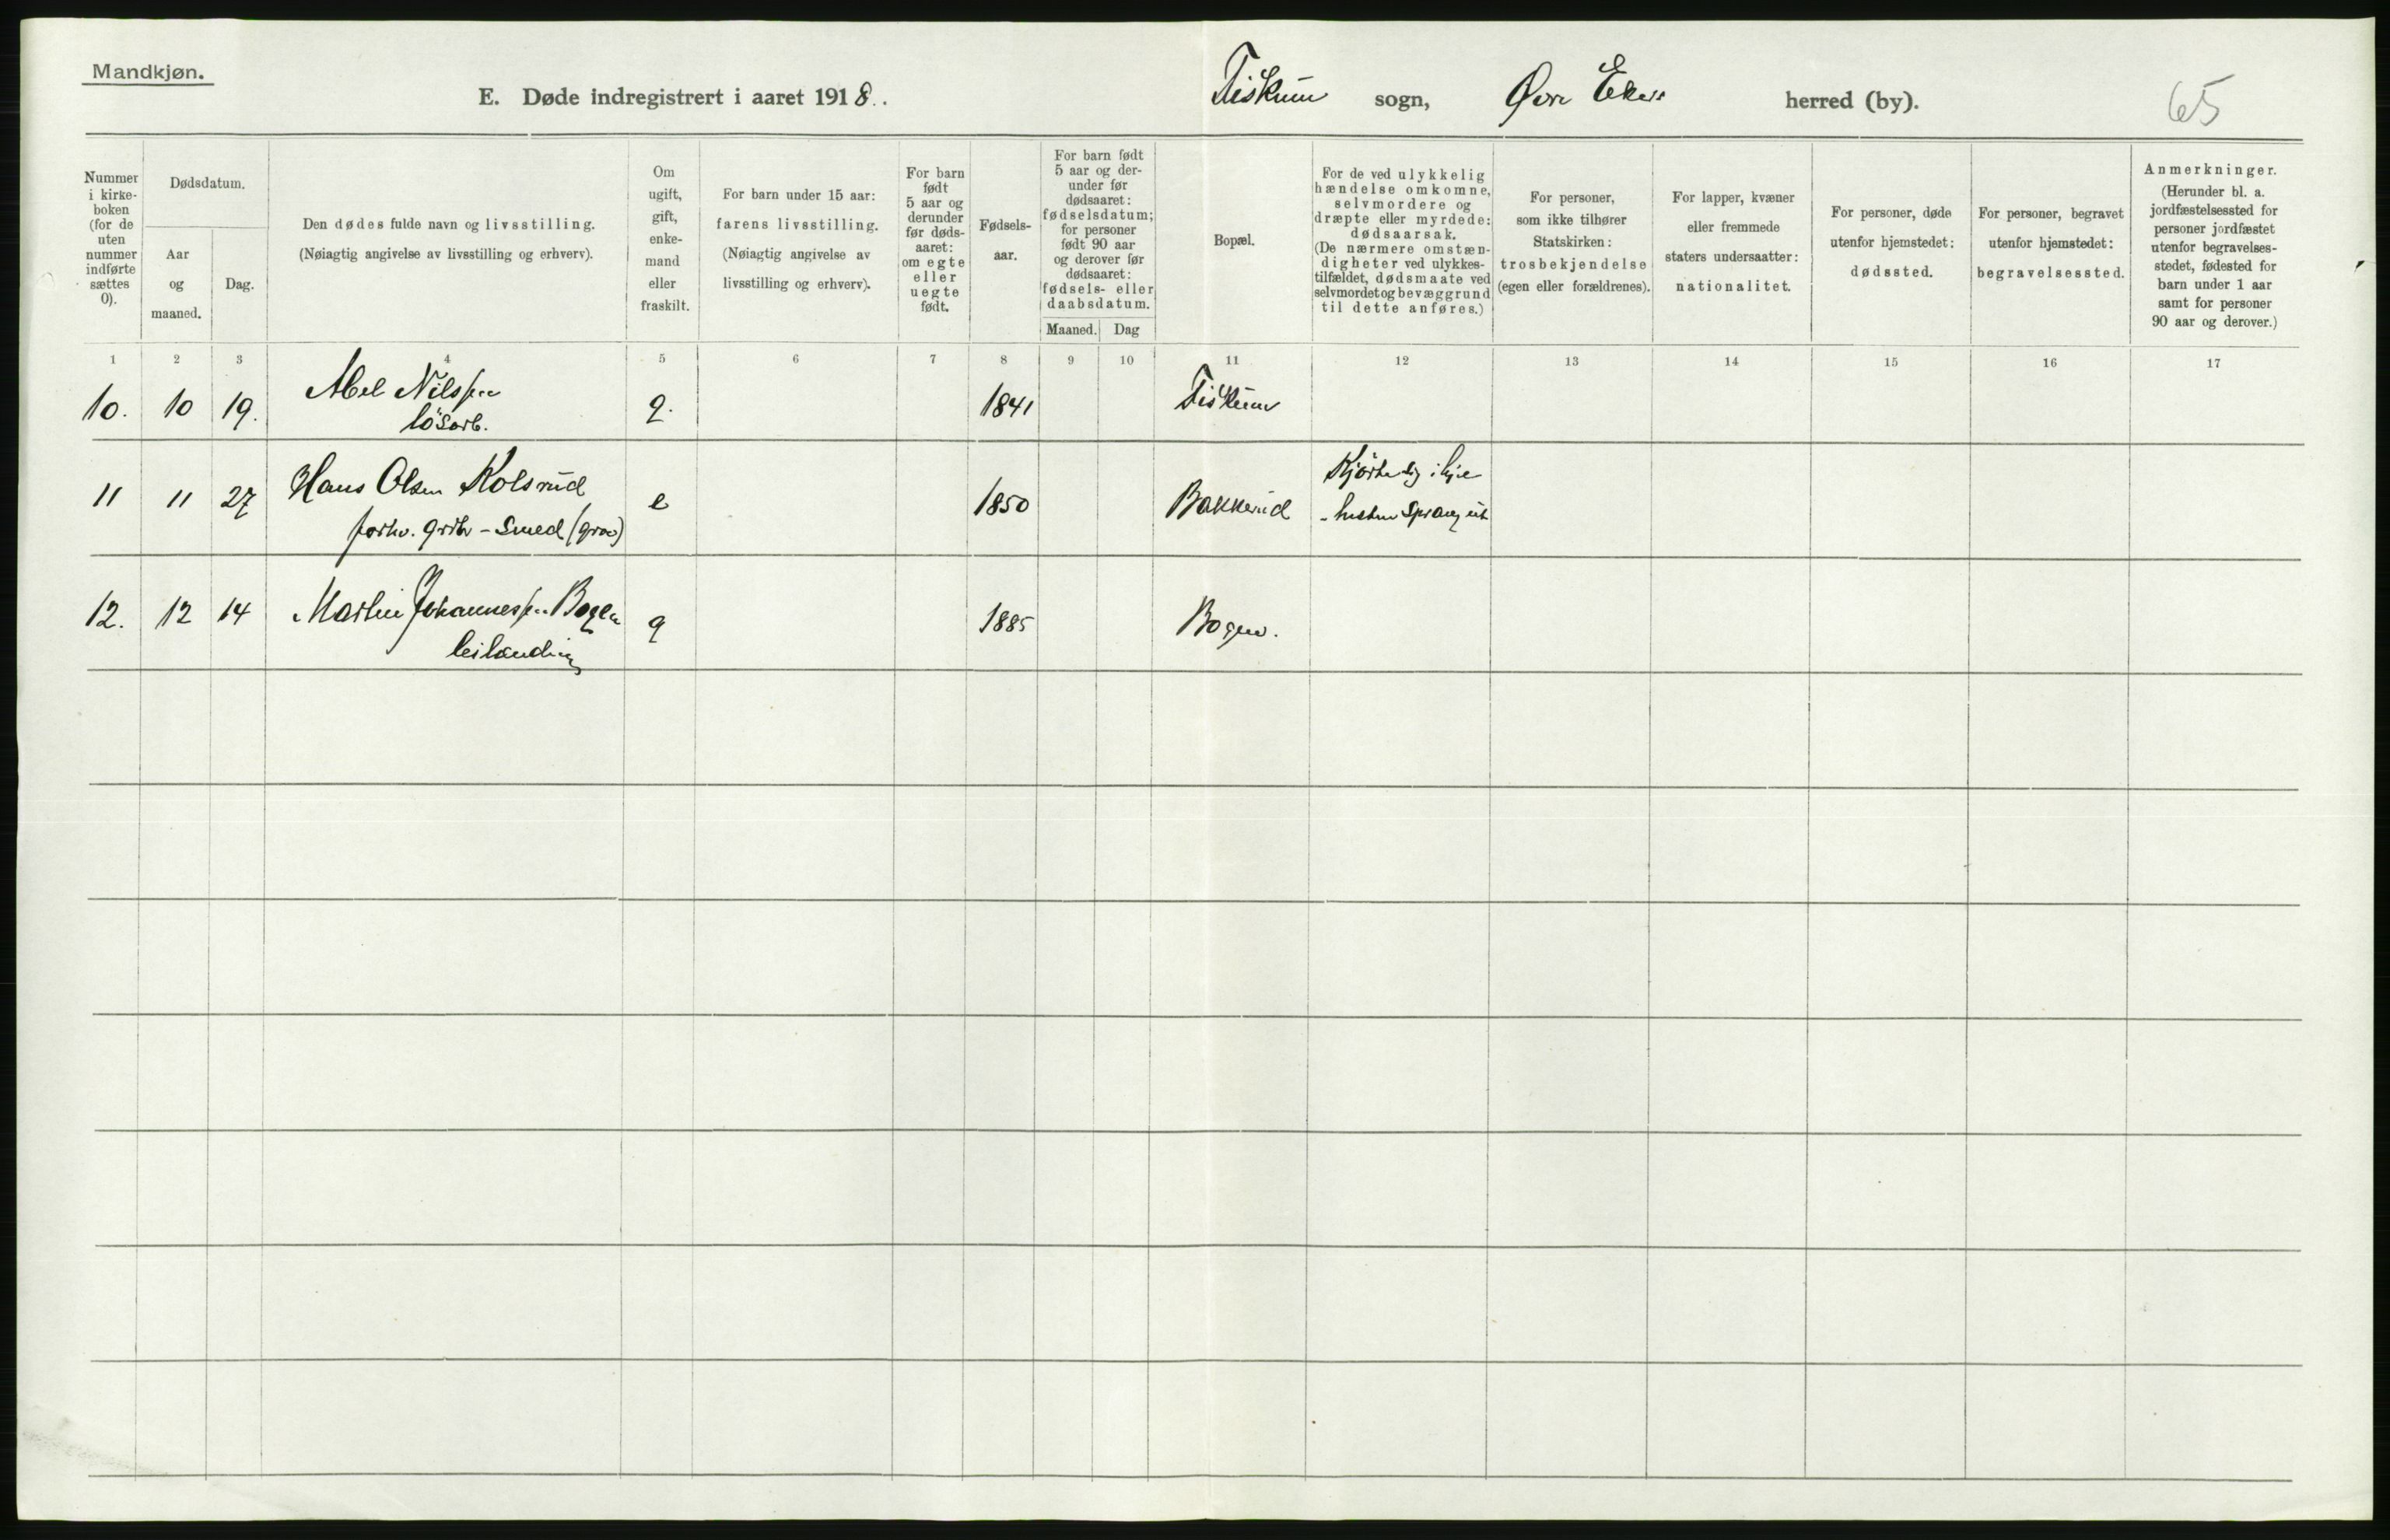 Mandkjøn.
E. Døde indregistrert i aaret 1918.
Fiskum sogn, Øvre Eker herred (by).
65
Nummer i kirke-boken (for de uten nummer indførte sættes 0).
Dødsdatum.
Aar og maaned.
Dag.
Den dødes fulde navn og livsstilling.
(Nøiagtig angivelse av livsstilling og erhverv).
Om ugift, gift, enke-mand eller fraskilt.
For barn under 15 aar:
farens livsstilling.
(Nøiagtig angivelse av livsstilling og erhverv).
For barn født 5 aar og derunder før døds-aaret: om egte eller uegte født.
Fødsels-aar.
For barn født 5 aar og der-under før dødsaaret: fødselsdatum; for personer født 90 aar og derover før dødsaaret: fødsels- eller daabsdatum.
Maaned. Dag
Bopæl.
For de ved ulykkelig hændelse omkomne, selvmordere og dræpte eller myrdede: dødsaarsak. (De nærmere omstæn-digheter ved ulykkes-tilfældet, dødsmaate ved selvmordet og bevæggrund til dette anføres.)
For personer, som ikke tilhører Statskirken: trosbekjendelse (egen eller forældrenes).
For lapper, kvæner eller fremmede staters undersaatter: nationalitet.
For personer, døde utenfor hjemstedet: dødssted.
For personer, begravet utenfor hjemstedet: begravelsessted.
Anmerkninger.
(Herunder bl. a. jordfæstelsessted for personer jordfæstet utenfor begravelses-stedet, fødested for barn under 1 aar samt for personer 90 aar og derover.)
1 2 3 4 5 6 7 8 9 10 11 12 13 14 15 16 17
10. 10 19. Abel Nilssen g. 1841 Fiskum
løsarb.
11 11 27 Hans Olsen Kolsrud e 1850 Bakkerud Kjørte sig ihjel
forhv. - Smed (grov) - hesten sprang ut
12. 12 14 Martin Johannessen Bogen g 1885 Bogen.
leilænding